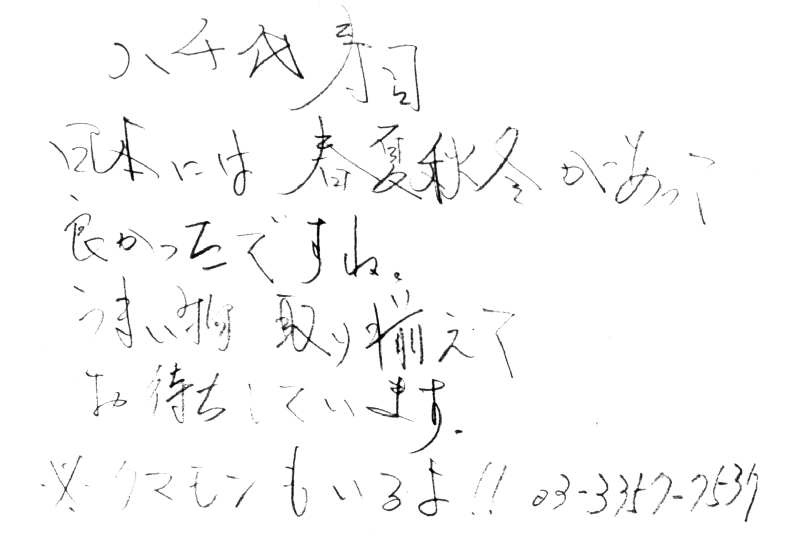 八千代寿司
日本には春夏秋冬があって
良かったですね。
うまい物取り揃えて
お待ちしています.
※クマモンもいるよ!! 03-3357-7537